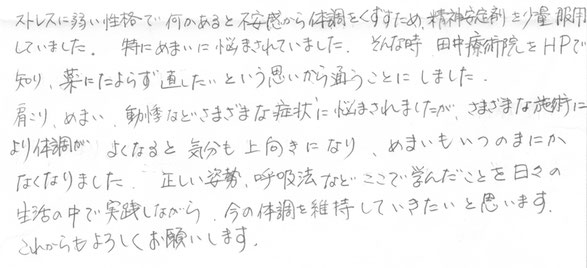 ストレスに弱い性格で何かあると不安感から体調をくずすため、精神安定剤を少量服用
していました。特にめまいに悩まされていました。そんな時、田中療術院をHPで
知り、薬にたよらず直したいという思いから通うことにしました。
肩こり、めまい、動悸などさまざまな症状に悩まされましたが、さまざまな施術に
より体調が よくなると気分も上向きになり、めまいもいつのまにか
なくなりました。正しい姿勢、呼吸法などここで学んだことを日々の
生活の中で実践しながら、今の体調を維持していきたいと思います。
これからもよろしくお願いします。